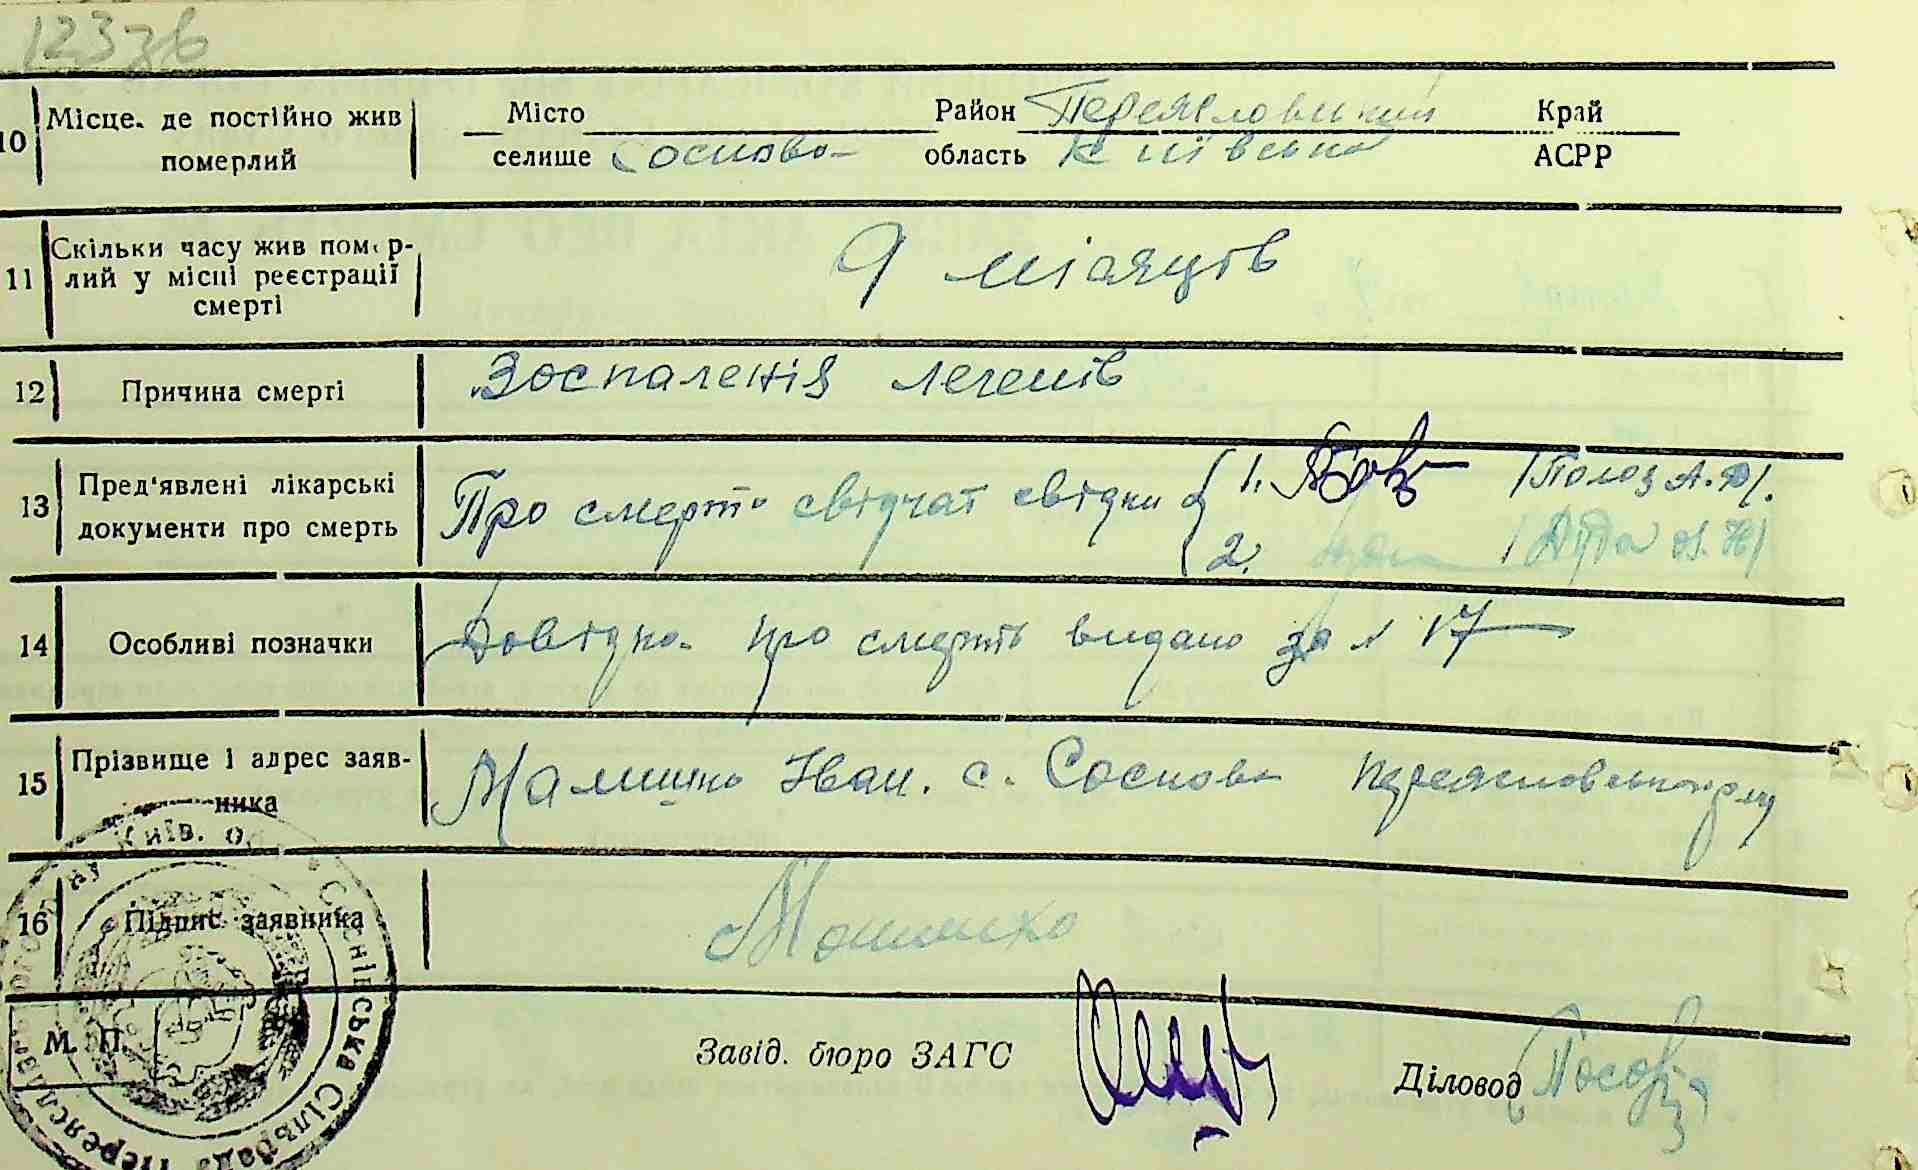 123зв
10 Місце, де постійно жив померлий Місто Район Переяславський Край
селище Соснова область Київська АСРР
11 Скільки часу жив помер-
лий у місці реєстрації
смерті
9 місяців
12 Причина смерті Зоспаленія легенів
13 Пред'явлені лікарські
документи про смерть
Про смерть свідчат свідки 1. /Полоз А.
2. /Дуда
14 Особливі позначки Довідка про смерть видано за № 17
15 Прізвище і адрес заяв-
ника
Малишко Іван. с. Соснова Переяславського р-ну
16 Підпис заявника Малишко
М. П.
Завід. бюро ЗАГС Діловод
Соснінська Сільрада Переяславського р-ну Київ. обл.